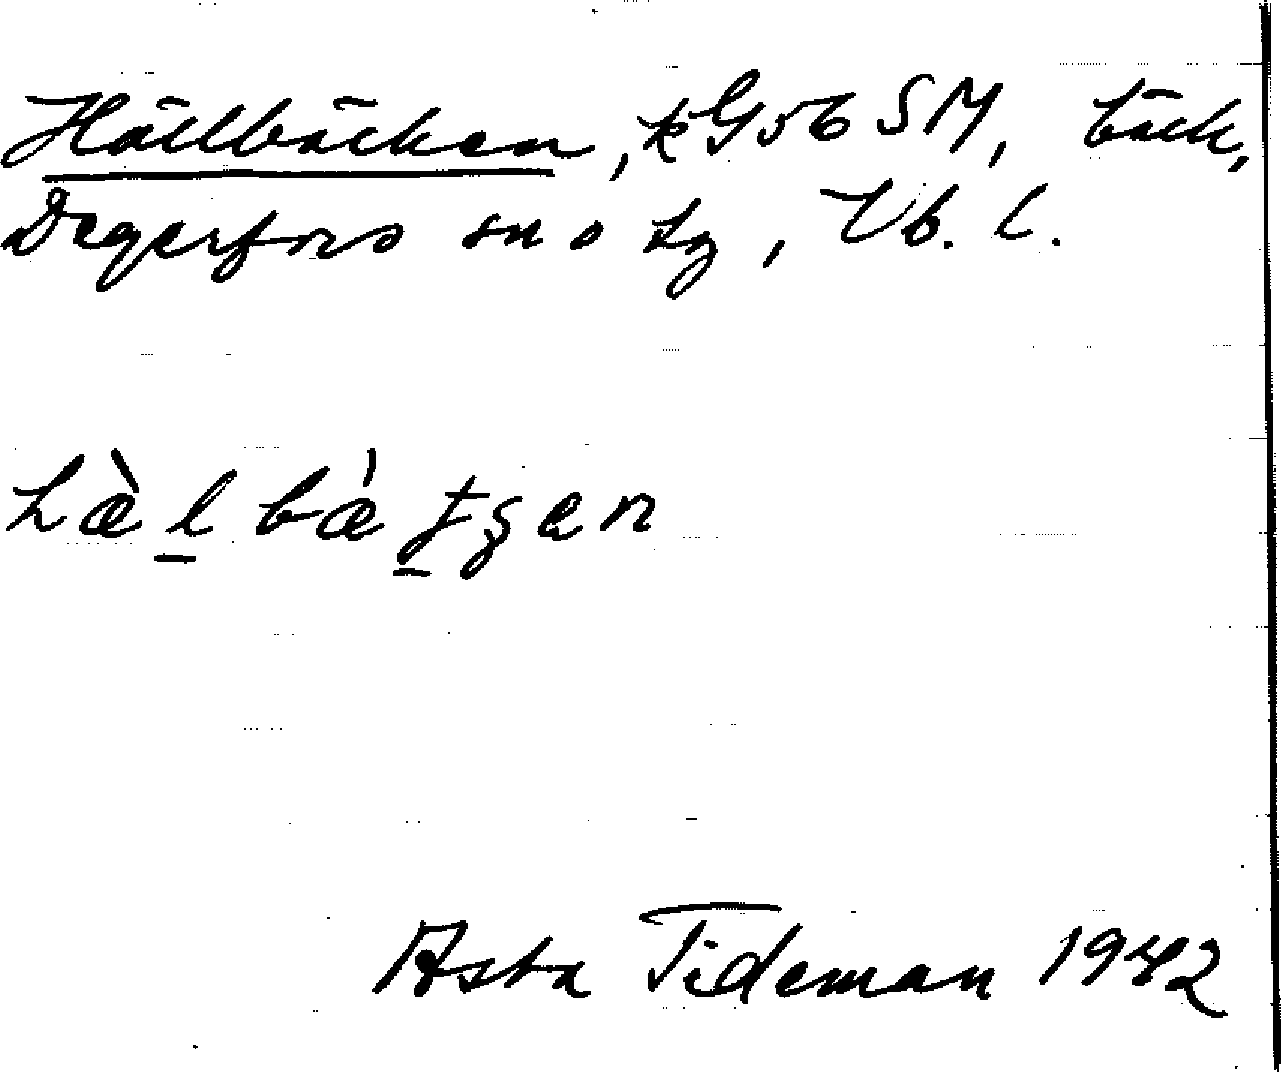 Hällbäcken, kG56 SM, bäck,
Degerfors sn o tg, Vb. l.
hæ̀l bæ̀
Asta Tideman 1942